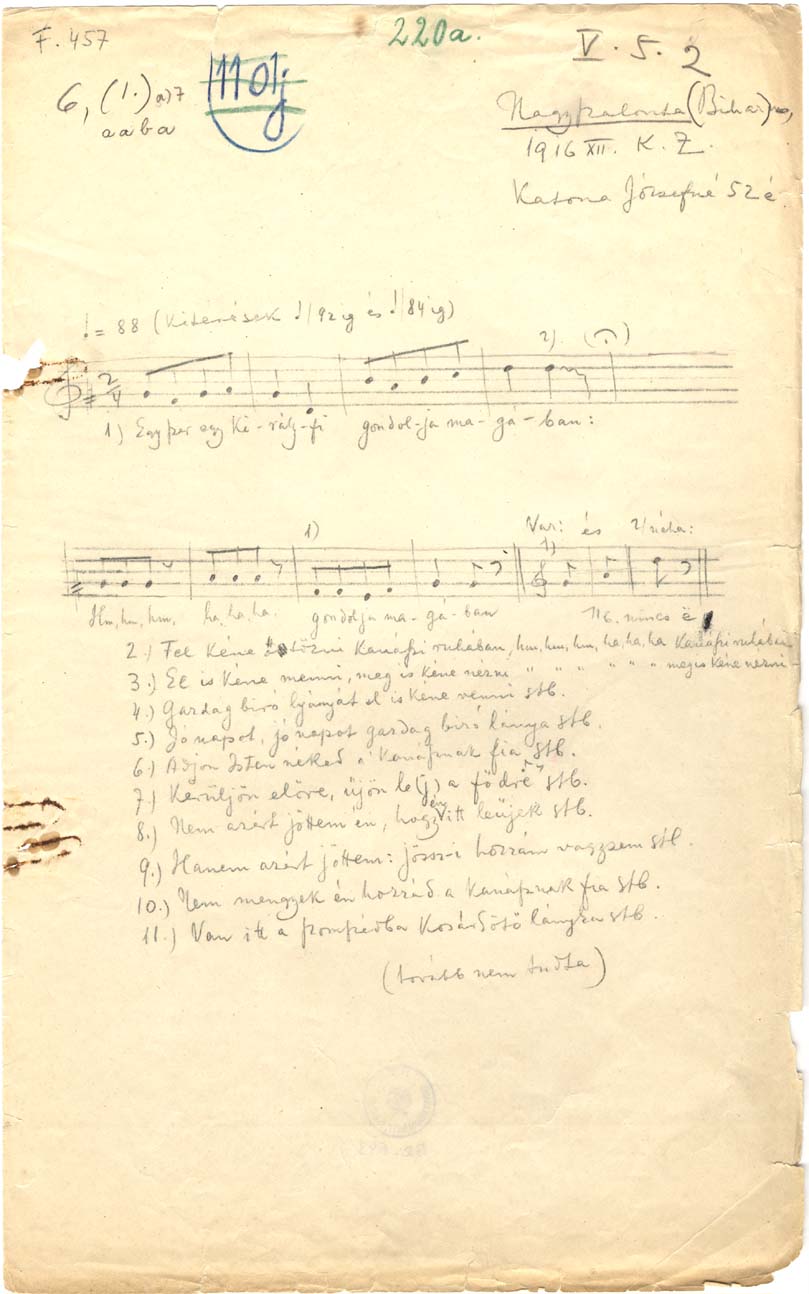 F. 457
220a.
V. 5. 2
6, (1.) a)7
a a b a
1101j
Nagyszalonta (Bihar)
1916 XII. K. Z.
Katona Józsefné 52 é.
♩ = 88 (Kitérések ♩/92ig és ♩/84ig)
2). (𝄐)
2/4
1) Egyszer egy ki-rály-fi gondol-ja ma-gá-ban:
1) Var: és 2/néha:
1)
Hm, hm, hm, ha, ha, ha. gondolja ma-gá-ban 6. nincs
2.) Fel kéne öltözni kanászi ruhában, hm, hm, hm, ha, ha, ha kanászi ruhában
3.) El is kéne menni, meg is kéne nézni " " " " " " meg is kéne nézni
4.) Gazdag biró lyányát el is kéne venni stb.
5.) Jó napot, jó napot gazdag biró lánya stb.
6.) Adjon Isten néked a kanásznak fia stb.
7.) Kerüljön előre, üjön le(j) a fődre stb.
8.) Nem azért jöttem én, hogy én itt leüjek stb.
9.) Hanem azért jöttem: jössz-i hozzám vagy sem stb.
10.) Nem mengyek én hozzád a kanásznak fia stb.
11.) Van itt a szomszédba kosárkötő lánya stb.
(tovább nem tudta)